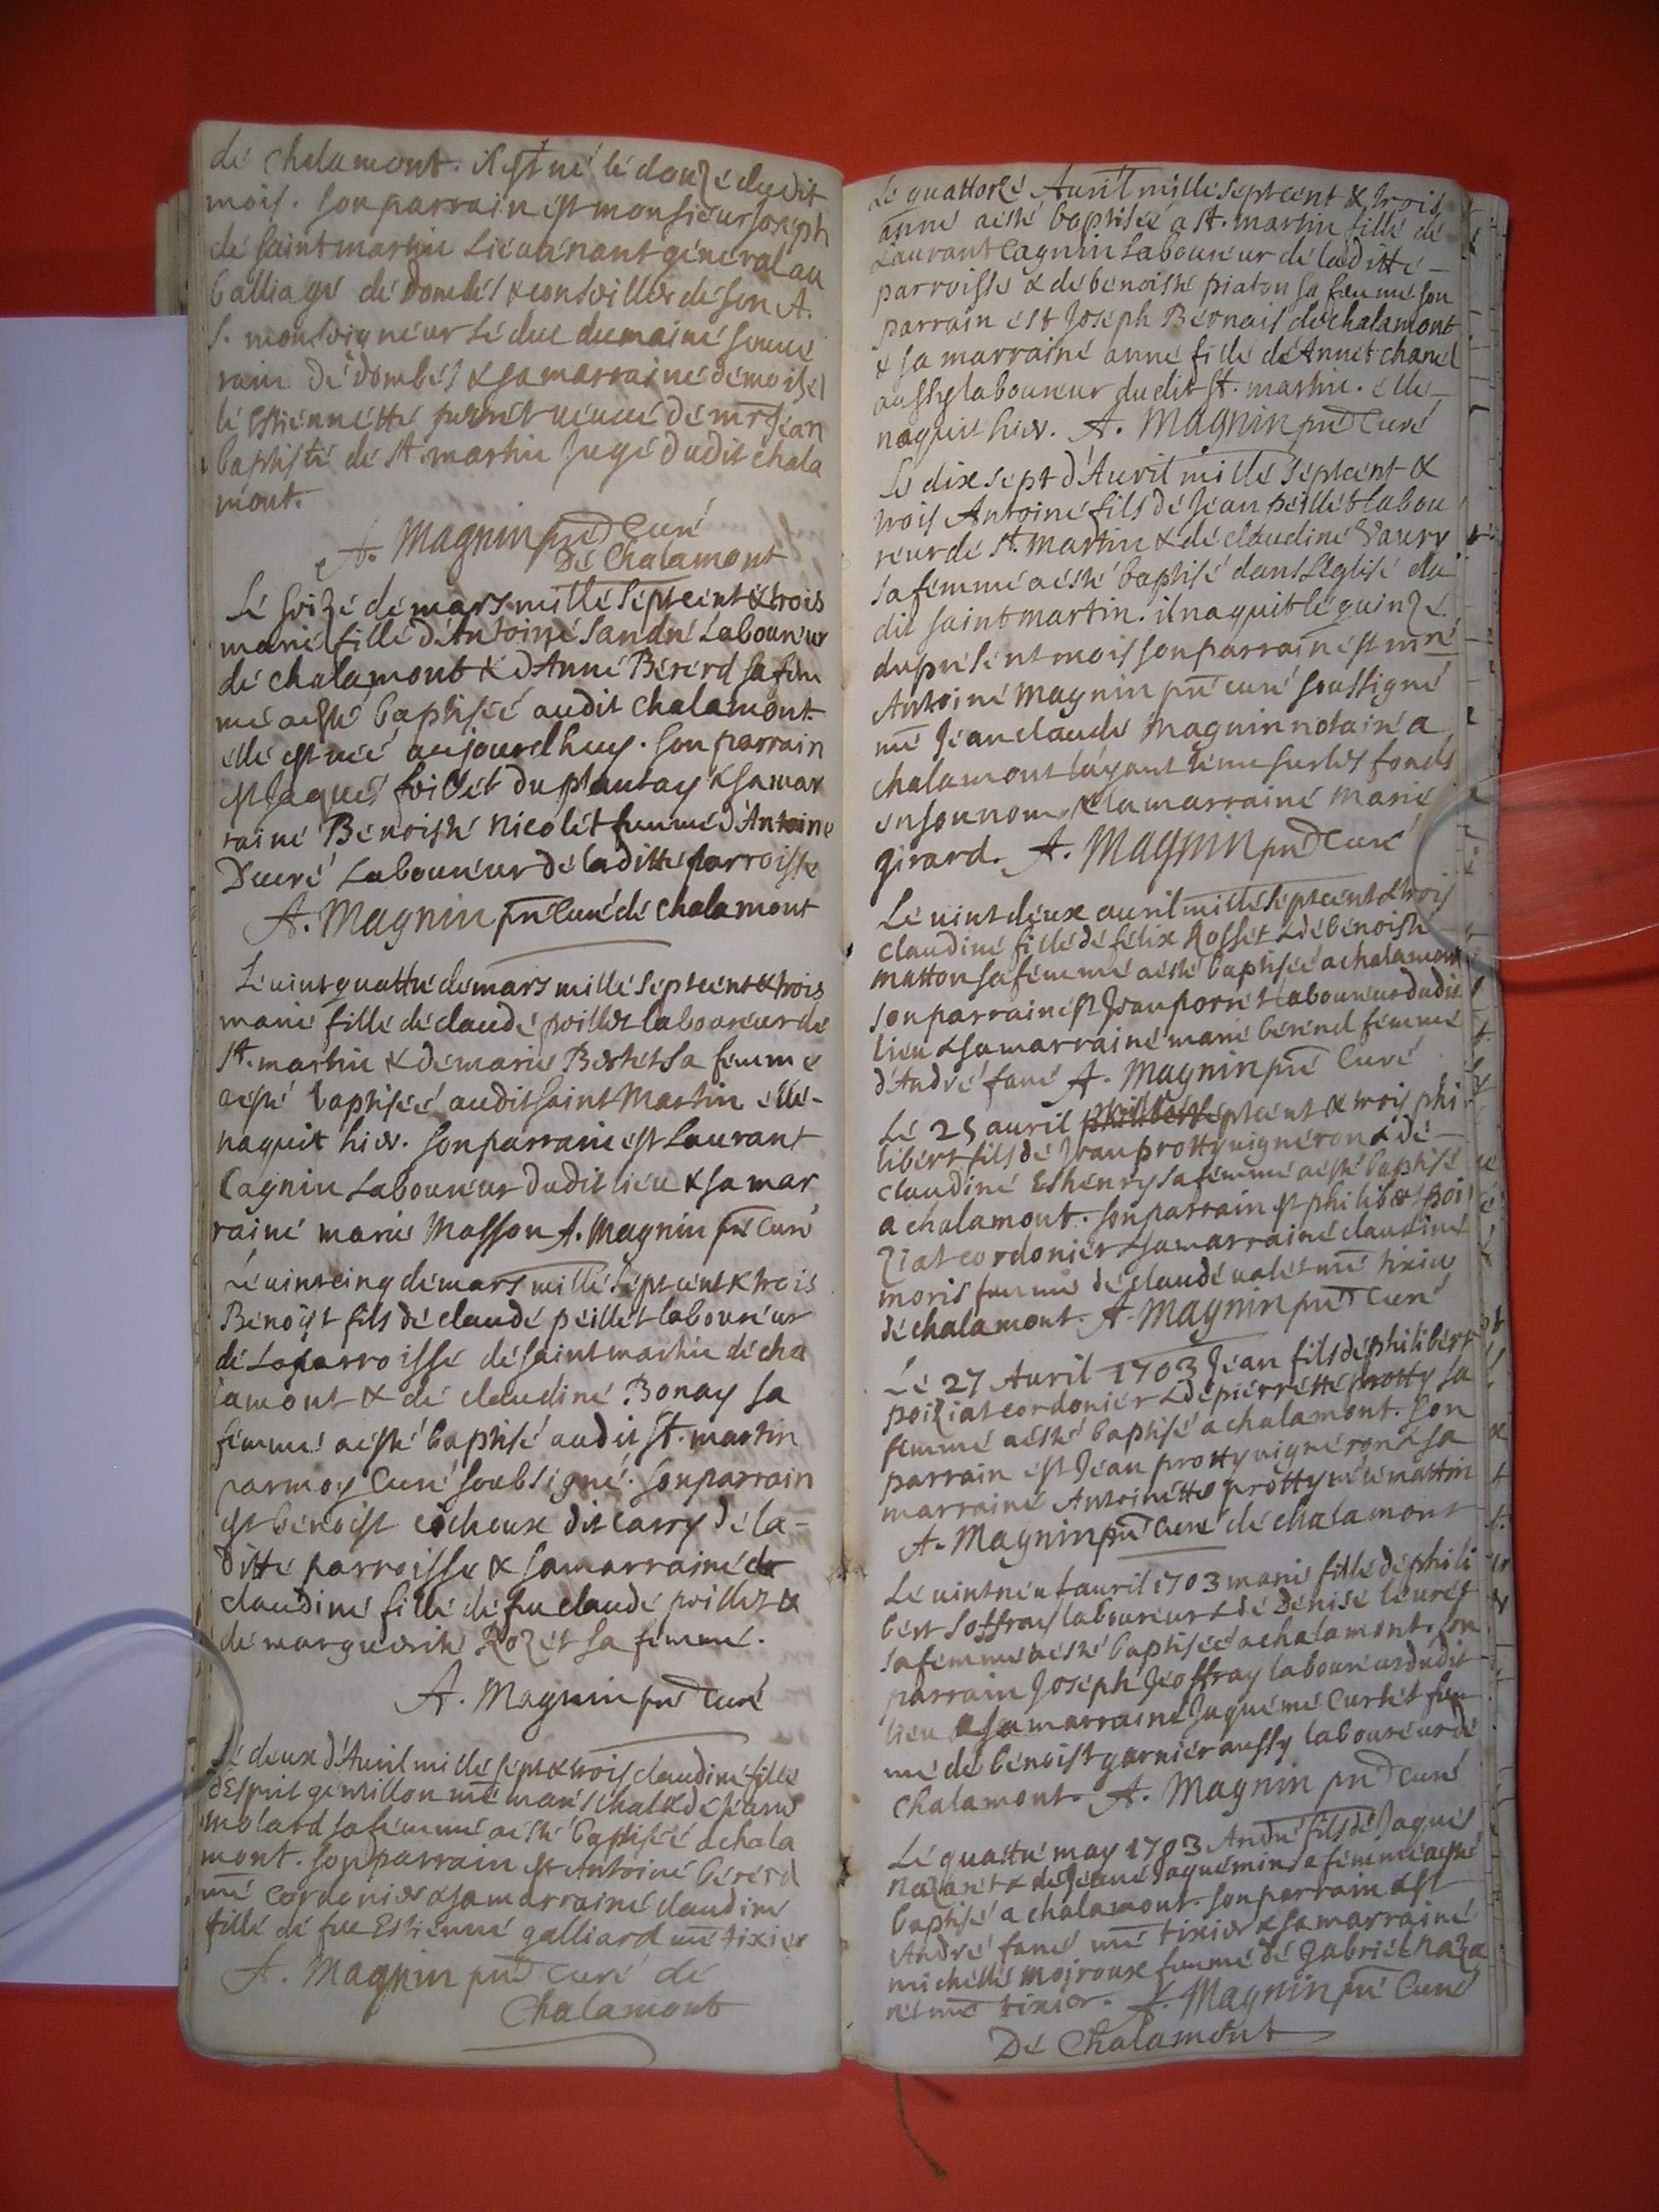 dé chalamont. il est né lé douzé dudit
mois. son parrain est monsieur Joseph
dé saint martin Lieutenant général au
balliagé dé Dombés & conseiller dé son A.
S. monseigneur Lé duc dumainé souué
rain dé dombés & sa marrainé démoisel
lé Estiennétté perrét ueuué dé mr Jéan
baptisté dé st. martin Jugé dudit chala
mont.
A. Magnin prē Curé
Dé Chalamont
Lé seizé dé mars millé séptcent & trois
marié fillé d'Antoiné Sandré Labouréur
dé chalamont & d'Anné Bérérd sa fém
mé aesté baptiséé audit chalamont.
éllé est néé aujourdhuy. son parrain
est Jaqués foillét du plantay & sa mar
rainé Bénoisté nicolét femmé d'Antoine
Ducré Labouréur dé laditté parroisse
A. Magnin prē Curé dé chalamont
Lé uint quattré dé mars millé séptcent & trois
marié fillé dé claudé peillet labouréur dé
st. martin & dé marié Bertet sa femme
aesté baptiséé audit saint Martin éllé
naquit hier. son parrain est Laurant
Cagnin Labouréur dudit lieu & sa mar
rainé marié Masson A. Magnin prē Curé
Lé uint cinq dé mars millé séptcent & trois
Bénoist fils dé claudé péillét labouréur
dé La parroissé dé saint martin dé cha
lamont & dé claudiné Bonay sa
fémmé aesté baptisé audit st. martin
par moy Curé soubsigné. son parrain
est bénoist cocheux dit carry dé la
ditté parroisse & sa marrainé
claudiné fillé dé feu claudé peillet &
dé marguerite Rozét sa fémmé.
A. Magnin prē Curé
Lé deux d'Auril millé sept & trois claudiné fillé
d'Esprit gémillon mē maréschal & dé Jéanné
molard sa fémmé aesté baptiséé a chala
mont. son parrain est Antoiné bérérd
mē cordonier & sa marrainé claudiné
fillé dé feu Estienné galliard mē tixier
A. Magnin prē curé dé
Chalamont
Lé quattorzé Auril millé séptcent & trois
anné aesté baptiséé a st. martin fillé dé
Laurant Cagnin Labouréur dé laditté
parroissé & dé bénoisté piaton sa femmé son
parrain ést Joséph Bérnais dé chalamont
& sa marrainé anné fillé dé Annét chanél
aussy labouréur dudit st. martin. éllé
naquit hier. A. Magnin prē Curé
Lé dix sept d'Auril millé séptcent &
trois Antoiné fils dé Jéan péillét labou
réur dé st. Martin & dé claudiné
sa fémmé aesté baptisé dans L'églisé du
dit saint martin. il naquit lé quinzé
du présént mois son parrain est mré
Antoiné Magnin prē curé soussigné
mē Jéan claudé Magnin notairé a
chalamont l'ayant ténu sur lés fonds
en son nom, & la marrainé Marié
girard. A. Magnin prē Curé
Lé uint deux auril millé séptcent & trois
claudiné fillé dé félix Rossét & dé bénoisté
matton sa fémmé aesté baptiséé a chalamont
son parrain ést Jéan porrét labouréur dudit
lieu & sa marrainé marié bérérd fémmé
d'André fané A. Magnin prē Curé
Lé 25 auril séptcent & trois phi
libért fils dé Jéan protty uignéron & dé
claudiné Esthénry sa fémmé aesté baptisé
a chalamont. son parrain est philibért poi
ziat cordonier & sa marrainé claudiné
moris femmé dé claudé ualét mē tixier
dé chalamont. A. Magnin prē Curé
Lé 27 Auril 1703 Jéan fils dé philibért
poiziat cordonier & dé piérrétté protty sa
femmé aesté baptisé a chalamont. son
parrain est Jéan protty uignéron & sa
marrainé Antoinétté protty uéuué mattin
A. Magnin prē Curé dé chalamont
Lé uintneuf auril 1703 marié fillé dé phili
bért Joffray labouréur & dé Dénisé léurét
sa fémmé aesté baptiséé a chalamont. son
parrain Joséph Jéoffray labouréur dudit
lieu & sa marrainé Jaquémé Curtét fem
mé dé bénoist garniér aussy labouréur dé
chalamont. A. Magnin prē Curé
Lé quattré may 1703 André fils dé Jaqués
nazarét & dé Jéané Jaquémin sa fémmé aesté
baptisé a chalamont. son parrain est
André fané mē tixier & sa marrainé
michéllé moiroux femmé dé gabriél naza
rét mē tixier. A. Magnin prē Curé
Dé Chalamont